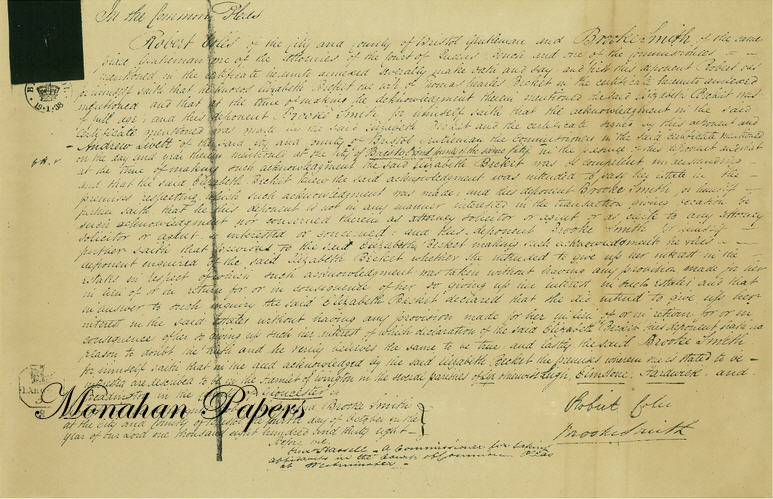 In the Common Pleas
Robert of the City and County of Bristol Gentleman and Brooke Smith of the same
place Gentleman one of the Attornies of the Court of Queens Bench and one of the Commissioners
mentioned in the certificate hereunto annexed Severally make oath and say and first this deponent Robert
for himself saith that he knows Elizabeth Becket the wife of Thomas Becket in the certificate hereunto annexed
mentioned and that at the time of making the acknowledgment therein mentioned the said Elizabeth Becket was
of full age and this deponent Brooke Smith for himself saith that the acknowledgment in the said
certificate mentioned was made by the said Elizabeth Becket and the certificate signed by this deponent and
Andrew Livett of the said City and County of Bristol Gentleman the Commissioners in the said certificate mentioned
on the day and year therein mentioned at the City of Bristol in the presence of this deponent and that
at the time of making such acknowledgment the said Elizabeth Becket was of competent understanding
and that the said Elizabeth Becket knew the said acknowledgment was intended to pass her estate in the
premises respecting which such acknowledgment was made and this deponent Brooke Smith for himself
further saith that he this deponent is not in any manner interested in the transaction giving occasion to
such acknowledgment nor concerned therein as attorney solicitor or agent or as clerk to any attorney
solicitor or agent so interested or concerned and this deponent Brooke Smith for himself
further saith that previous to the said Elizabeth Becket making such acknowledgment he this
deponent inquired of the said Elizabeth Becket whether she intended to give up her interest in the
estates in respect of which such acknowledgment was taken without having any provision made for her
in lieu of or in return for or in consequence of her so giving up her interest in such estates and that
in answer to such inquiry the said Elizabeth Becket declared that she did intend to give up her
interest in the said estates without having any provision made for her in lieu of or in return for or in
consequence of her so giving up such her interest of which declaration of the said Elizabeth Becket this deponent hath no
reason to doubt the truth and he verily believes the same to be true and lastly the said Brooke Smith
for himself saith that in the deed acknowledged by the said Elizabeth Becket the premises wherein she is stated to be
are described to be in the in the several parishes of Leigh, Elmstone, Hardwick and
in the Gloucester
Brooke Smith
at the City and County of Bristol the fourth day of October in the
year of our Lord one thousand eight hundred and thirty eight
Before me
A Commissioner for taking
affidavits in the Court of Common Pleas
at Westminster
Robert
Brooke Smith
Monahan Papers